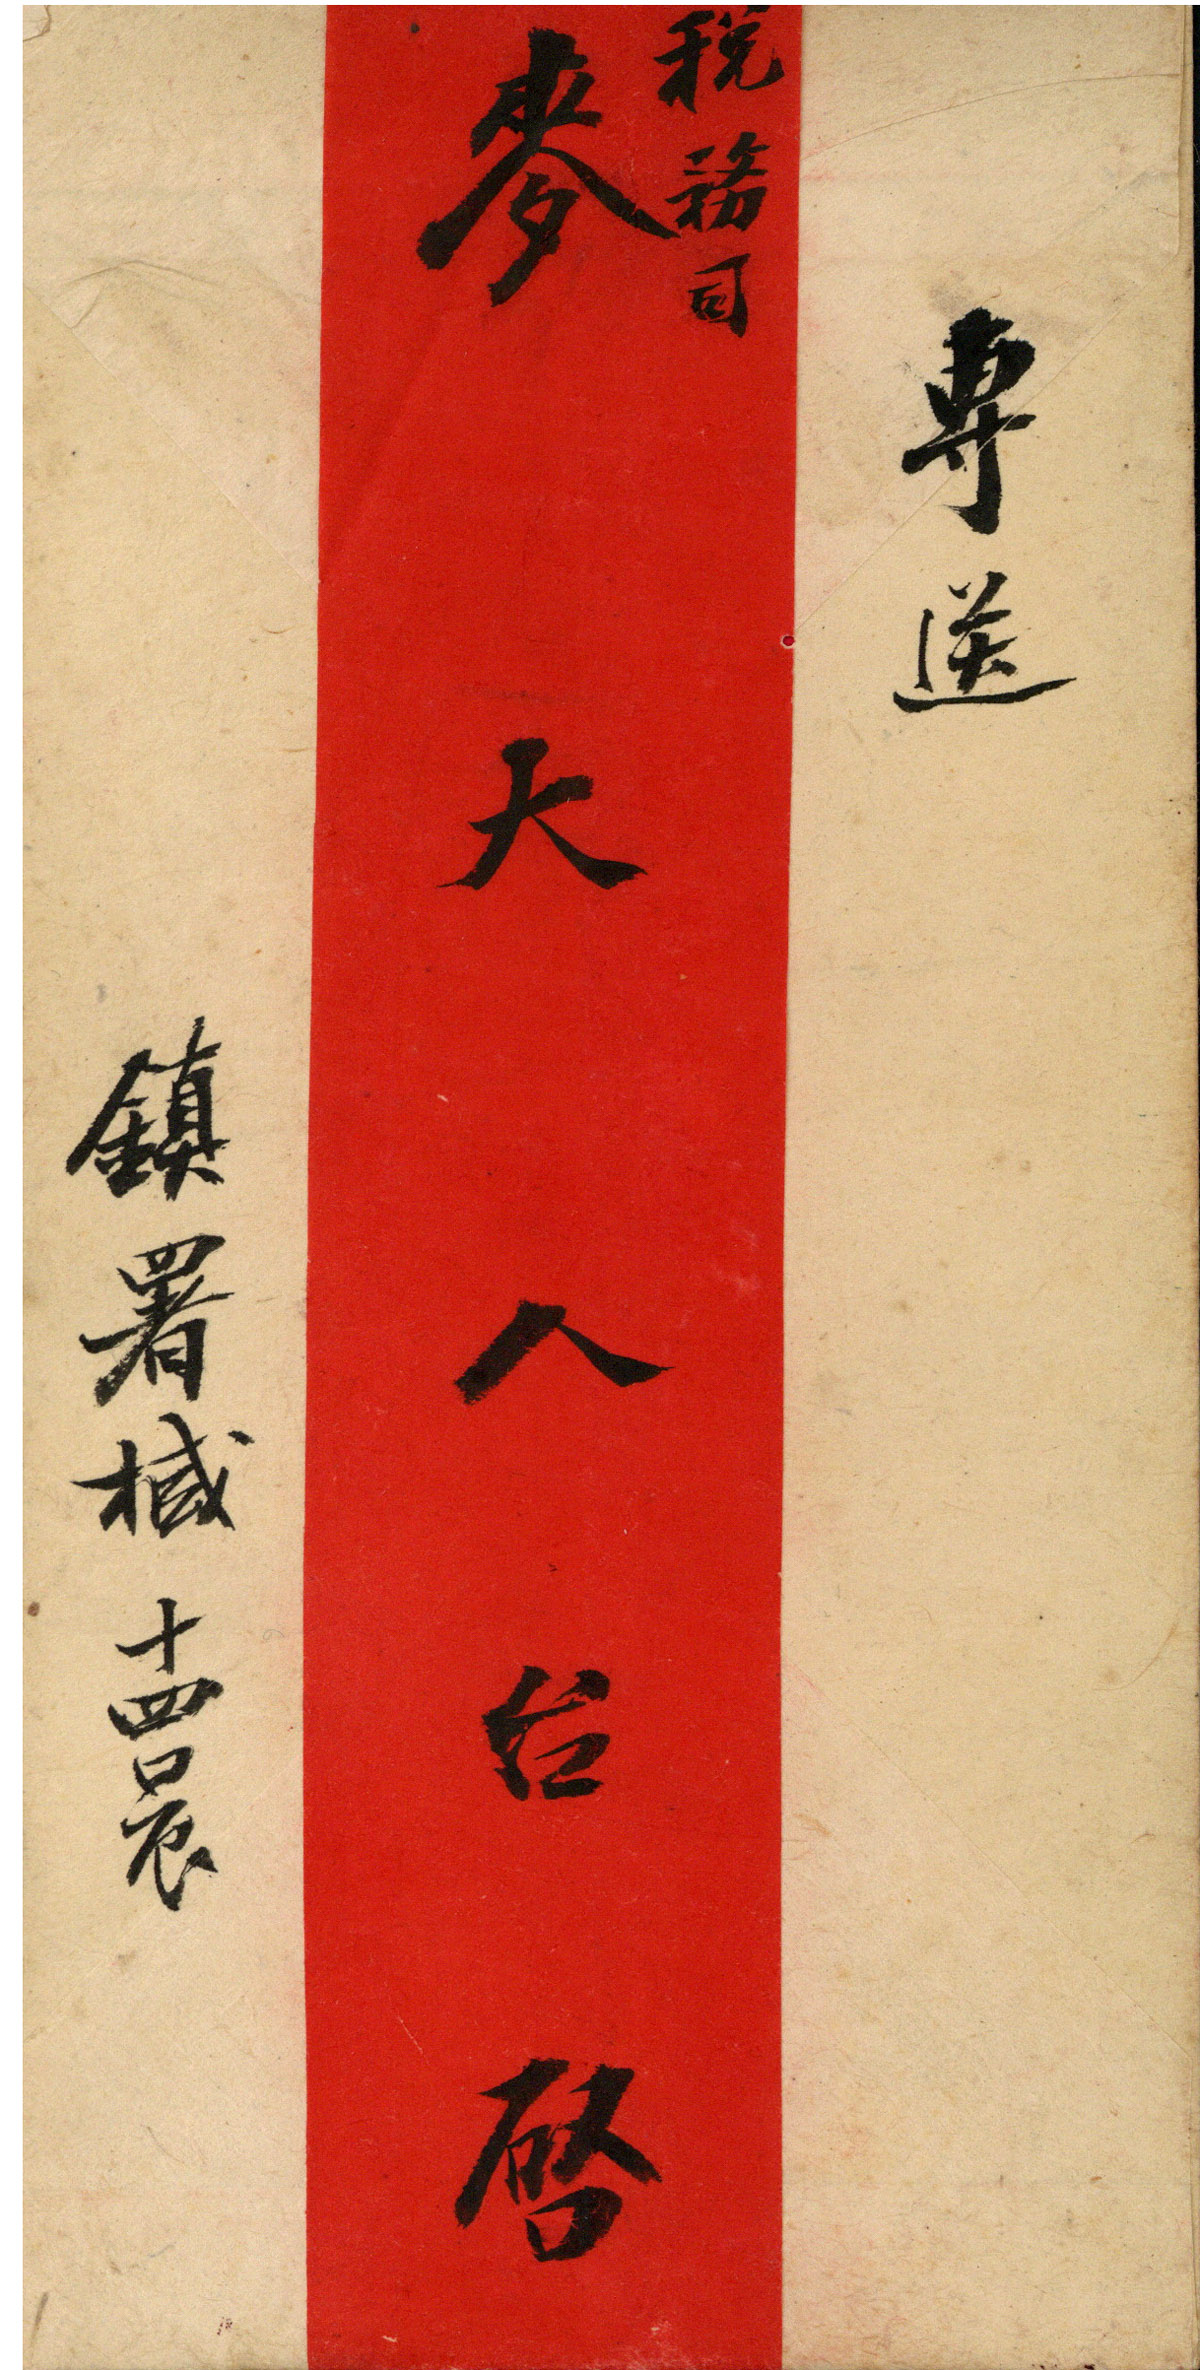 專送
稅務司
麥大人台啓
鎮署椷十四日晨